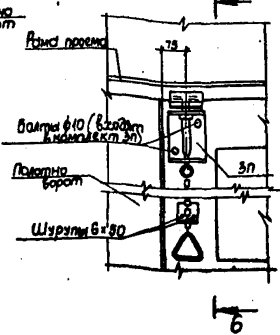 Рама проема
75
Болты ф10 (входят
в комплект ЗП)
ЗП
Полотно
ворот
Шурупы 6×50
6